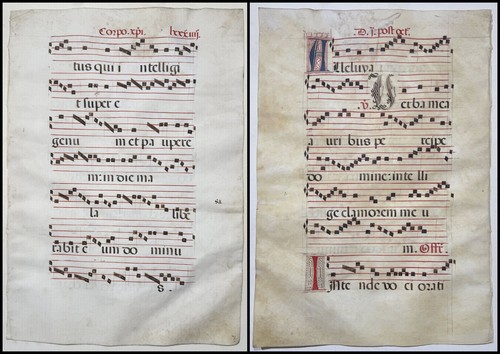 Corpo. xpi. lxxxiiij.
tus qui i ntelligi
t super e
genu m et pa upere
m: in die ma
la libe
rabit e um do minu
s.
D. j. post oct.
A
lleluya
℣. V erba mea
a uri bus pe rcipe
do mine: inte lli
ge clamorem me u
m. Offe.
I nte nde vo ci orati